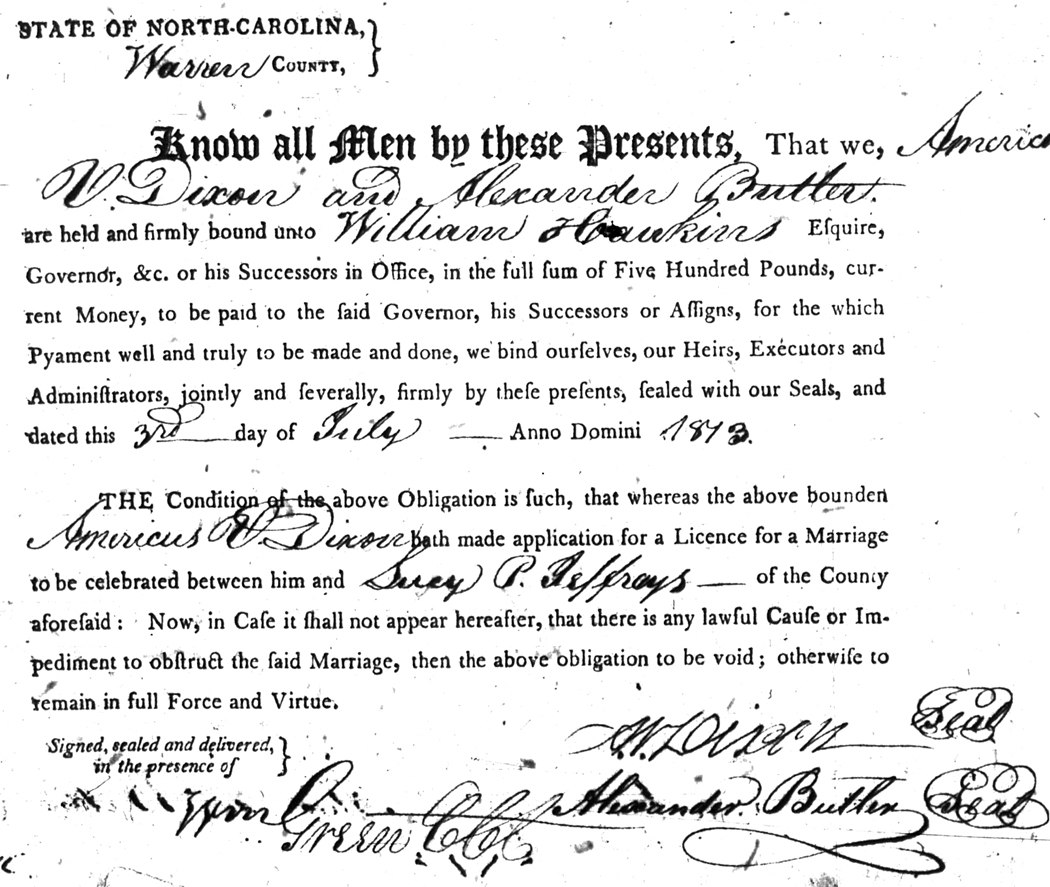 STATE OF NORTH-CAROLINA,
Warren COUNTY,
Know all Men by these Presents, That we, Americ
V. Dixon and Alexander Butler.
are held and firmly bound unto William Hawkins Eſquire,
Governor, &c. or his Successors in Office, in the full ſum of Five Hundred Pounds, cur-
rent Money, to be paid to the ſaid Governor, his Successors or Aſſigns, for the which
Pyament well and truly to be made and done, we bind ourſelves, our Heirs, Executors and
Adminiſtrators, jointly and ſeverally, firmly by theſe preſents, ſealed with our Seals, and
dated this 3rd day of July — Anno Domini 1813.
THE Condition of the above Obligation is ſuch, that whereas the above bounden
Americus V. Dixon hath made application for a Licence for a Marriage
to be celebrated between him and Lucy P. Jeffreys — of the County
aforeſaid: Now, in Caſe it ſhall not appear hereafter, that there is any lawful Cauſe or Im-
pediment to obſtruct the ſaid Marriage, then the above obligation to be void; otherwiſe to
remain in full Force and Virtue.
Signed, sealed and delivered,
in the presence of
Dixon Seal
Alexander Butler Seal
Green